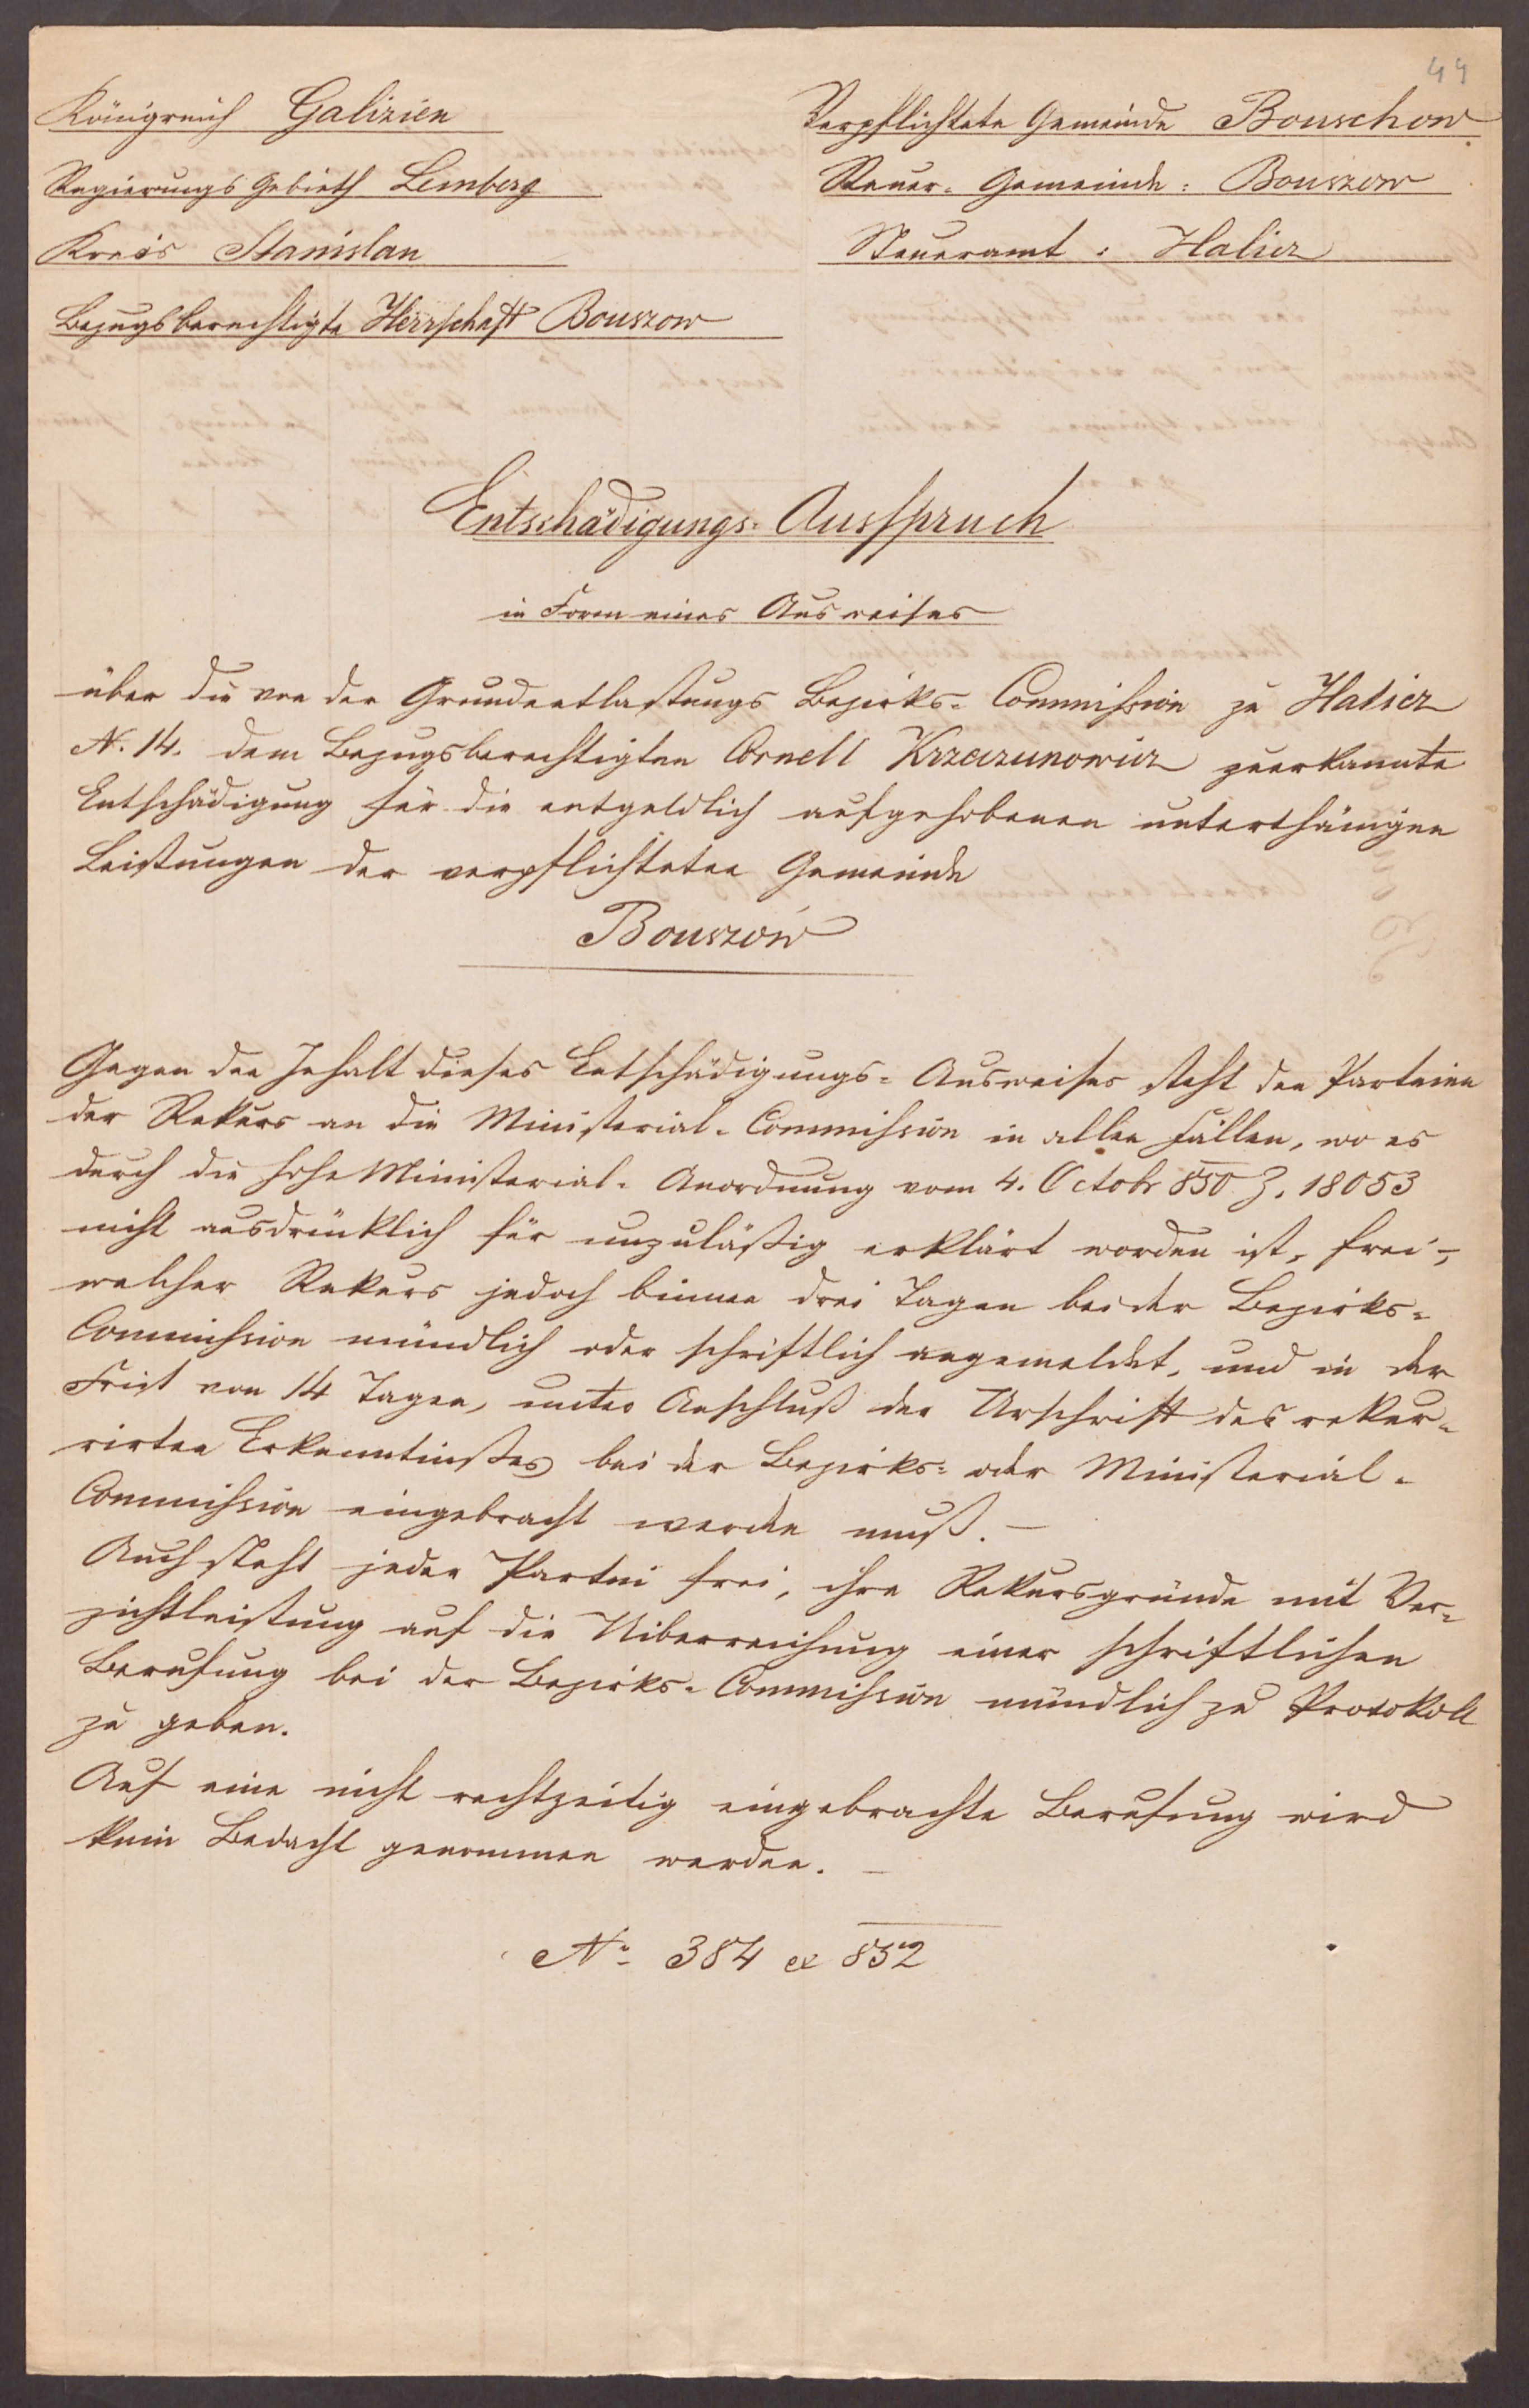 44
Königreich Galizien
Verpflichtete Gemeinde Bouschow
Regierungs Gebieth Lemberg
Steuer- Gemeinde: Bouszow
Kreis Stanislau
Steueramt: Halicz
Bezugsberechtigte Herrschaft Bouszow
Entschädigungs-Ausspruch
in Form eines Ausweises
über die von der Grundentlastungs Bezirks-Commission zu Halicz
N. 14. dem Bezugsberechtigten Cornell Krzeczunowicz zuerkannte
Entschädigung für die entgeldlich aufgehobenen unterthänigen
Leistungen der verpflichteten Gemeinde
Bouszów
Gegen den Inhalt dieses Entschädigungs-Ausweises steht den Parteien
der Rekurs an die Ministerial-Commission in allen Fällen, wo es
durch die hohe Ministerial-Anordnung vom 4. Octobr 850 Z. 18053
nicht ausdrücklich für unzuläßig erklärt worden ist, frei,
welcher Rekurs jedoch binnen drei Tagen bei der Bezirks-
Commission mündlich oder schriftlich angemeldet, und in der
Frist von 14 Tagen, unter Anschluß der Urschrift des rekur-
rirten Erkenntnißes bei der Bezirks- oder Ministerial-
Commission eingebracht werden muß. –
Auch steht jeder Partei frei, ihre Rekursgründe mit Ver-
zichtleistung auf die Uiberreichung einer schriftlichen
Berufung bei der Bezirks-Commission mündlich zu Protokoll
zu geben.
Auf eine nicht rechtzeitig eingebrachte Berufung wird
kein Bedacht genommen werden. –
No 384 ex 852